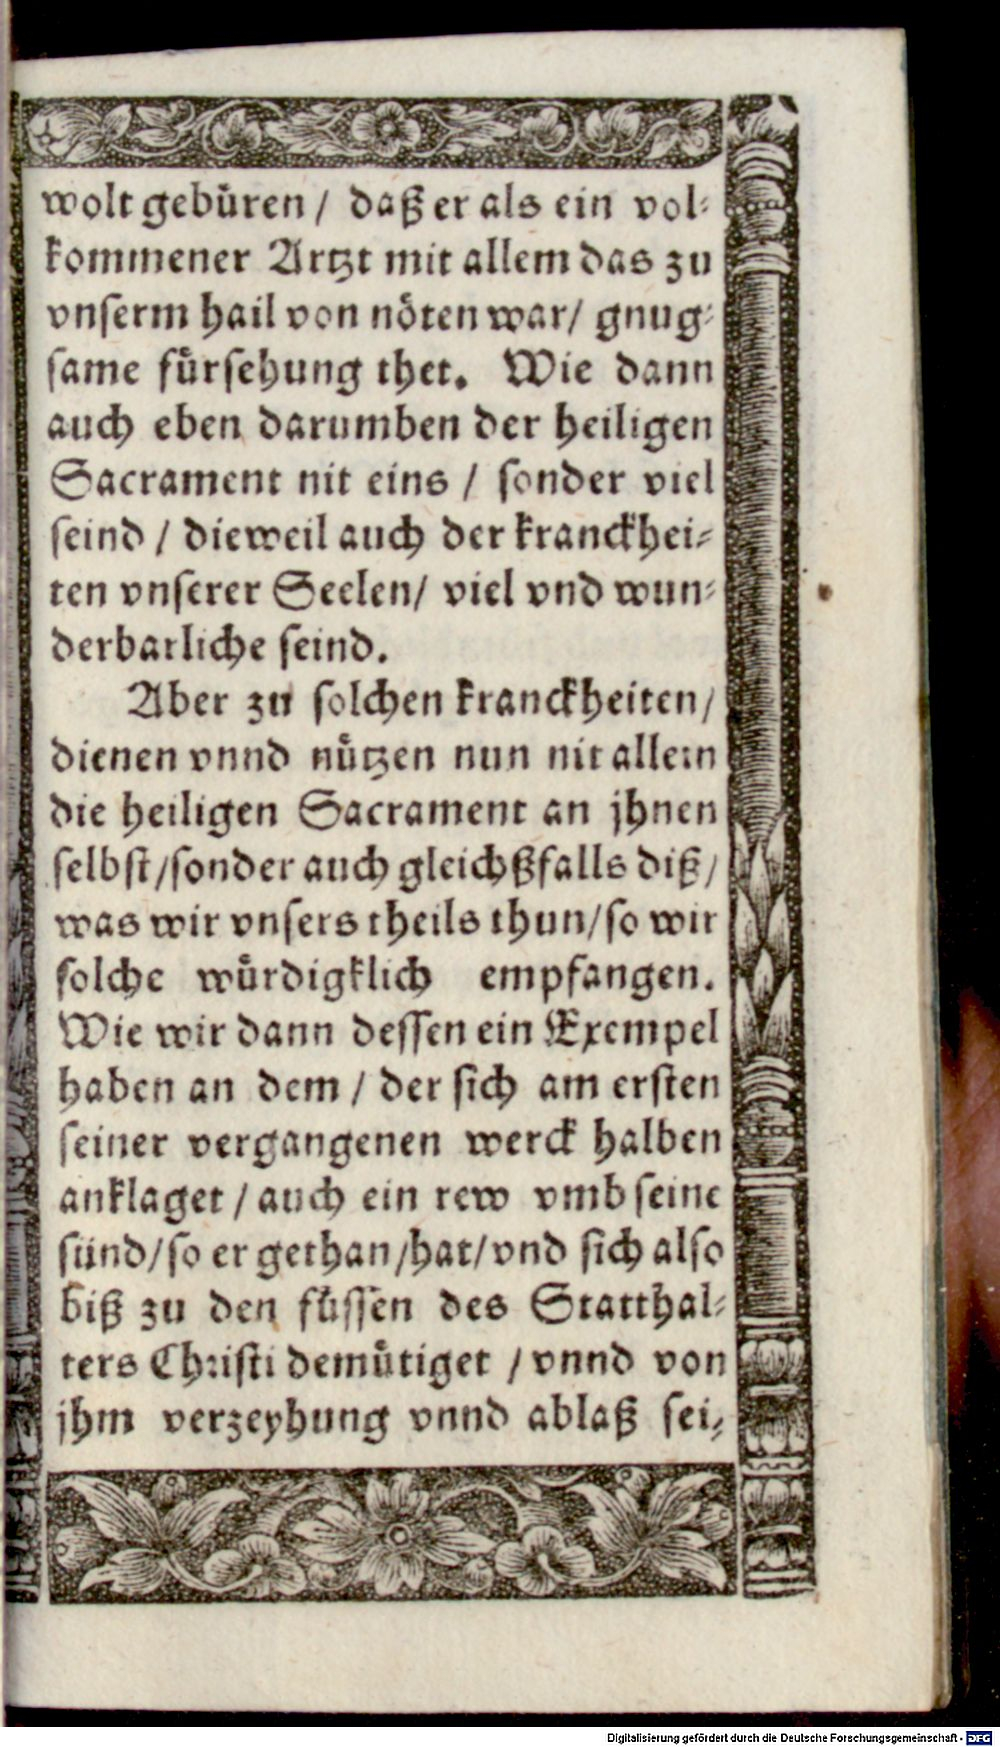 wolt gebüren / daß er als ein vol-
kommener Artzt mit allem das zu
vnserm hail von nöten war / gnug-
same fürsehung thet. Wie dann
auch eben darumben der heiligen
Sacrament nit eins / sonder viel
seind / dieweil auch der kranckhei-
ten vnserer Seelen / viel vnd wun-
derbarliche seind.
Aber zu solchen kranckheiten /
dienen vnnd nützen nun nit allein
die heiligen Sacrament an jhnen
selbst / sonder auch gleichßfalls diß /
was wir vnsers theils thun / so wir
solche würdigklich empfangen.
Wie wir dann dessen ein Exempel
haben an dem / der sich am ersten
seiner vergangenen werck halben
anklaget / auch ein rew vmb seine
sünd / so er gethan / hat / vnd sich also
biß zu den füssen des Statthal-
ters Christi demütiget / vnnd von
jhm verzeyhung vnnd ablaß sei-
Digitalisierung gefördert durch die Deutsche Forschungsgemeinschaft - DFG